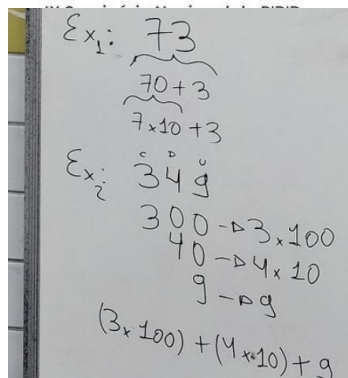 Ex1: 73
70+3
7x10+3
C D U
Ex2: 349
300 → 3x100
40 → 4x10
9 → 9
(3x100)+(4x10)+9